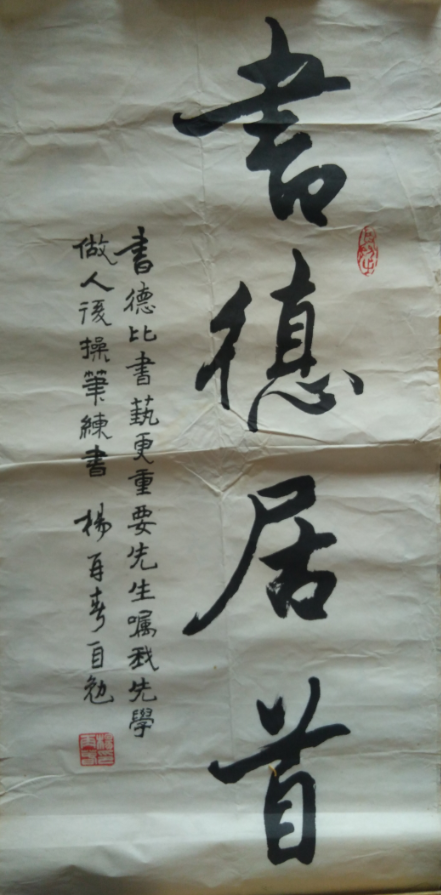 書德居首
書德比書藝更重要先生嘱我先學
做人後操筆練書 楊再春自勉